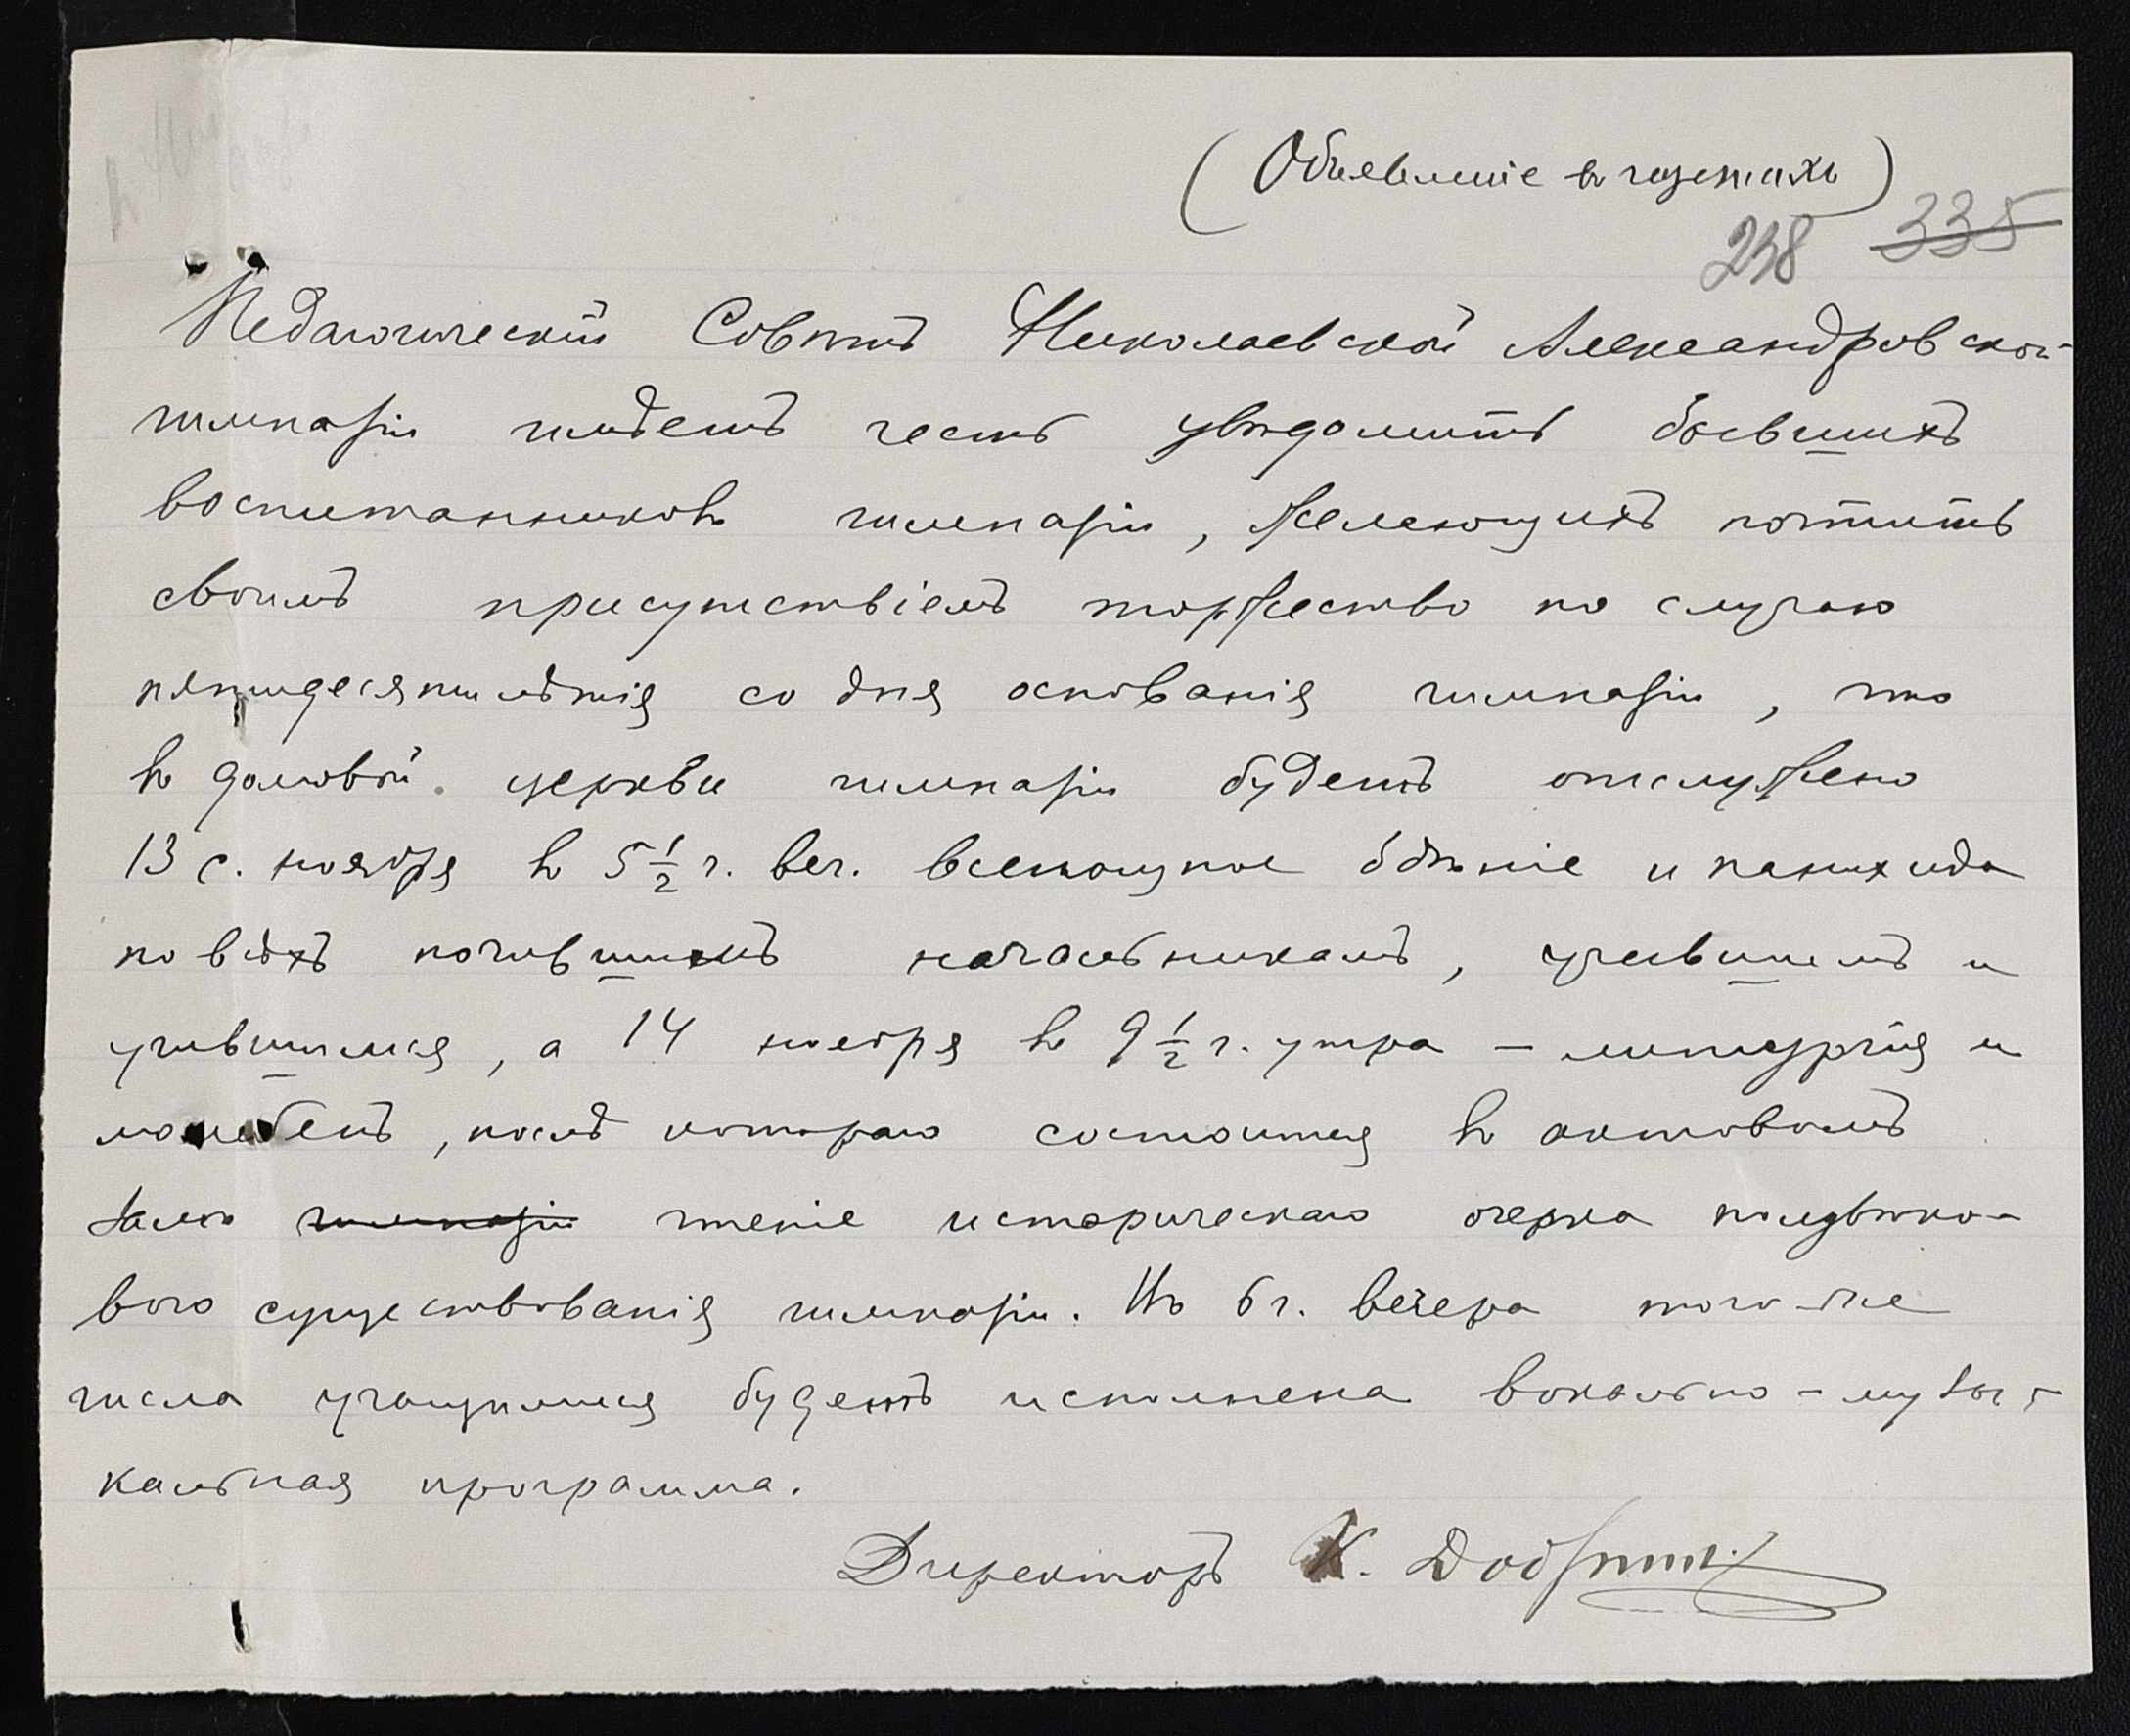 (Объявленіе въ газетахъ)
238 335
Педагогическій Совѣтъ Николаевской Александровской
гимназіи имѣетъ честь увѣдомить бывшихъ
воспитанниковъ гимназіи, желающихъ почтить
своимъ присутствіемъ торжество по случаю
пятидесятилѣтія со дня основанія гимназіи, что
въ домовой церкви гимназіи будетъ отслужено
13 с. ноября въ 5 1/2 ч. веч. всенощное бдѣніе и панихида
по всѣмъ почившимъ начальникамъ, учившимъ и
учившимся, а 14 ноября въ 9 1/2 ч. утра – литургія и
молебенъ, послѣ котораго состоится въ актовомъ
залѣ гимназіи чтеніе историческаго очерка полувѣко-
вого существованія гимназіи. Въ 6 ч. вечера того-же
числа учащимися будетъ исполнена вокально-музы-
кальная программа.
Директоръ К.